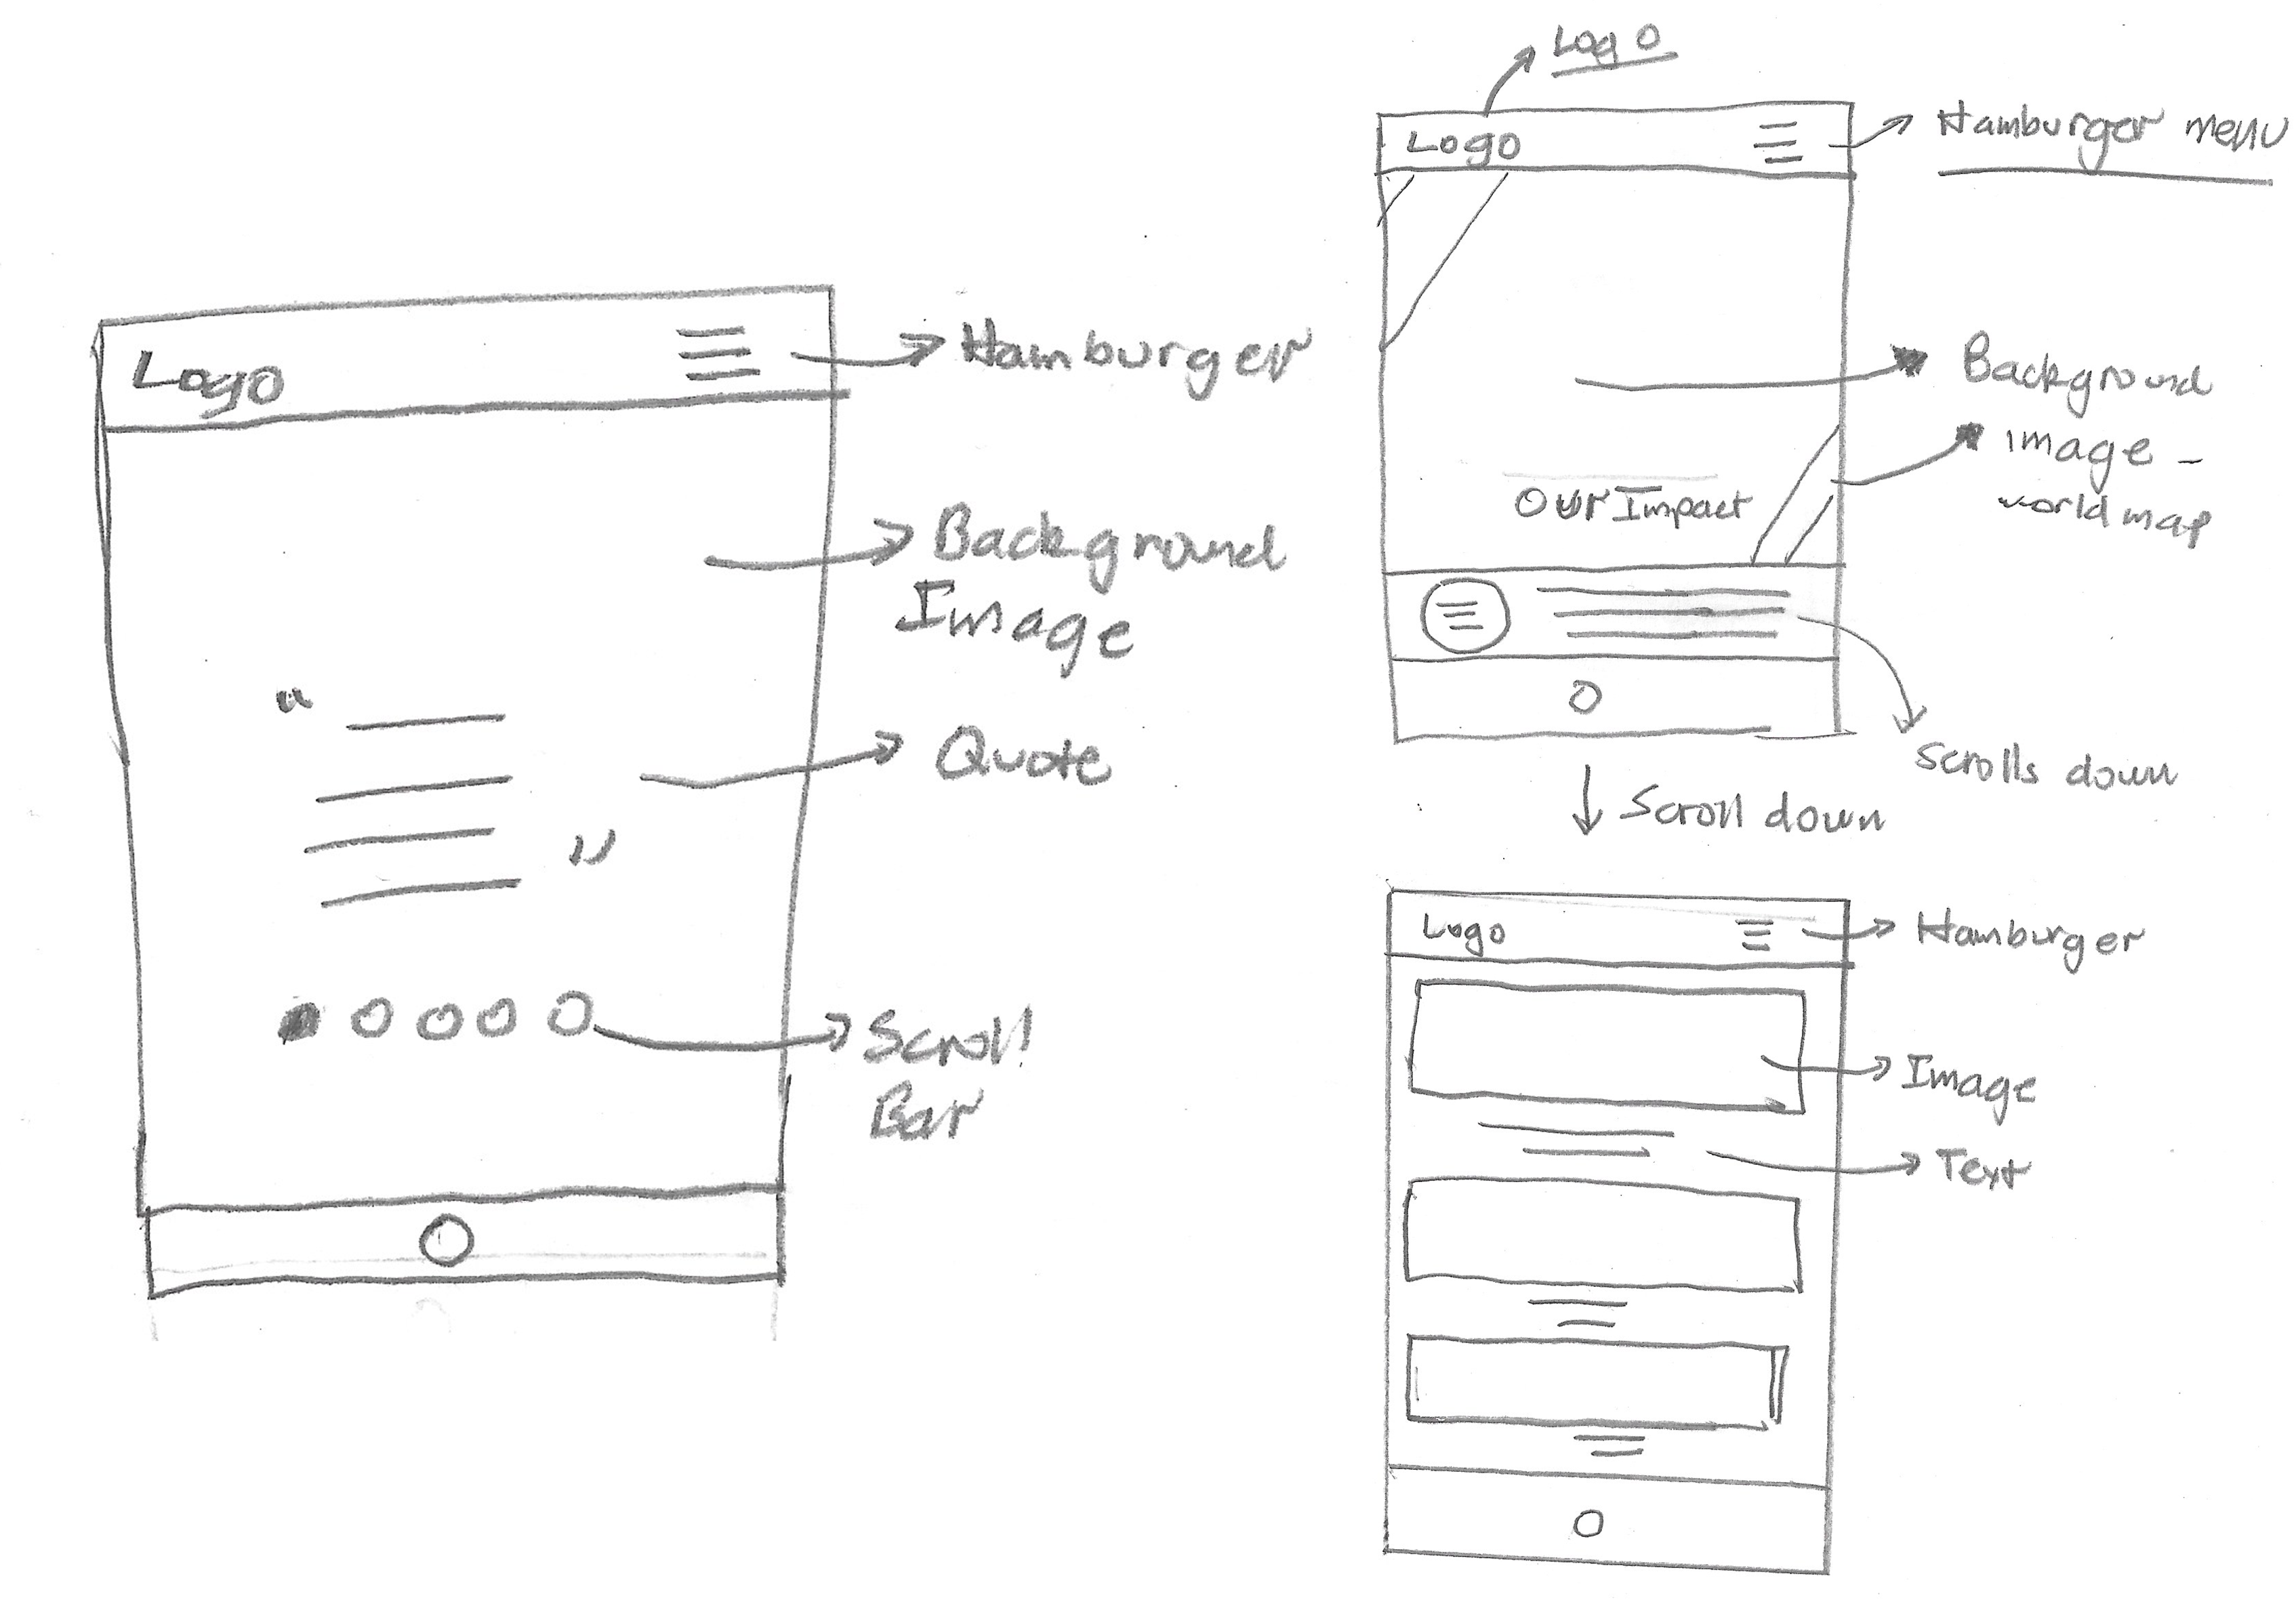 Logo
Hamburger
Background
Image
“
Quote
”
Scroll
Bar
Logo
Logo
Hamburger menu
Background
image -
world map
Our Impact
Scrolls down
Scroll down
Logo
Hamburger
Image
Text